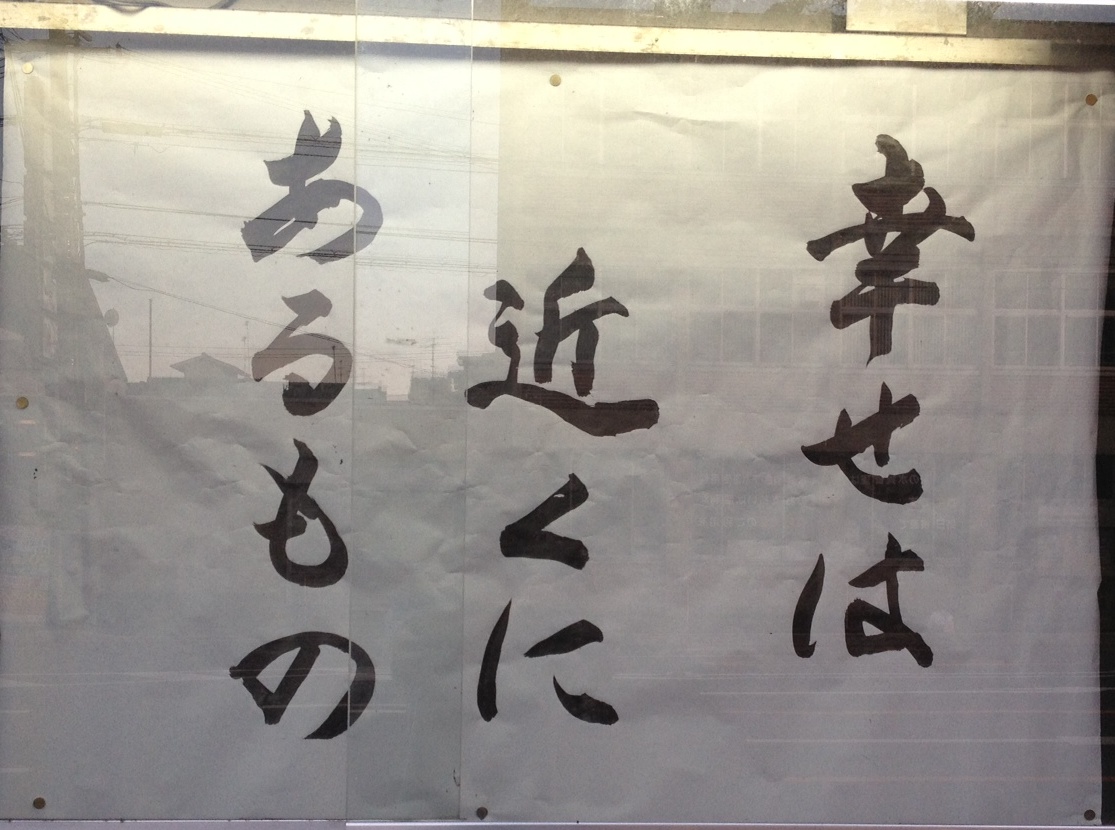 幸せは
近くに
あるもの